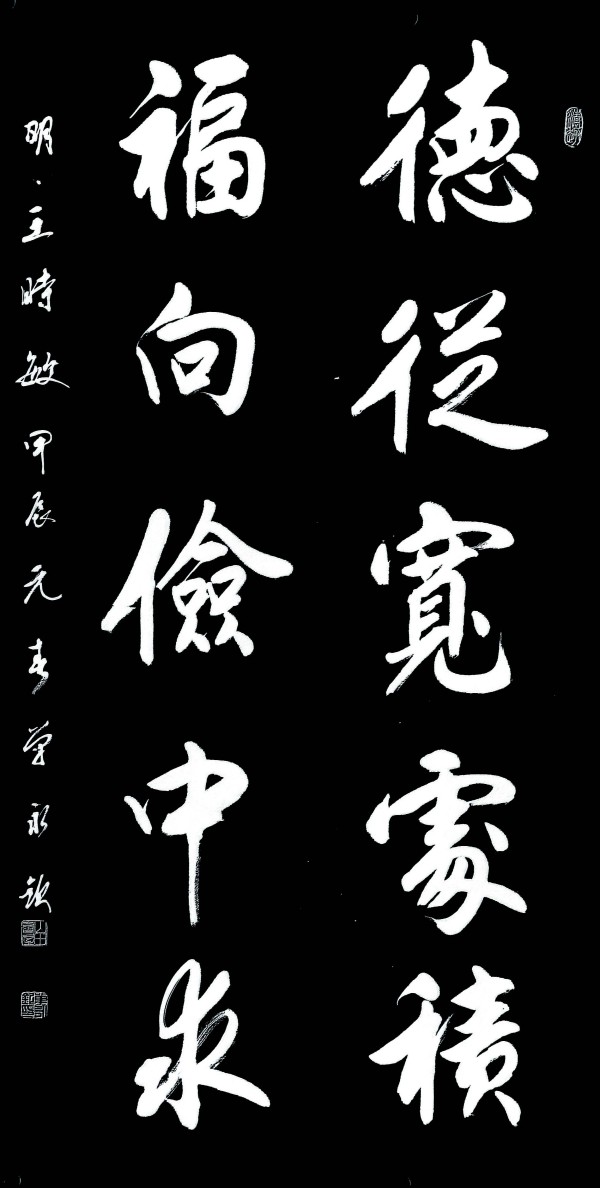 德從寬處積
福向儉中求
明、王時敏甲辰元春榮永欽